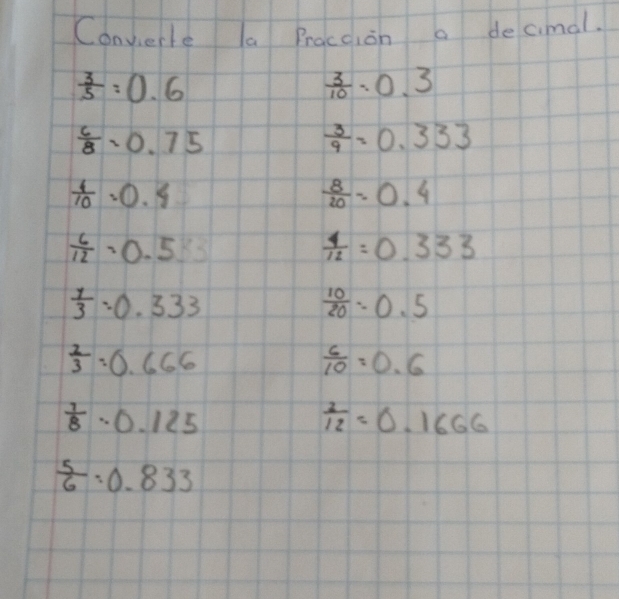 Convierte la Fracción a decimal.
3/5 = 0.6
3/10 = 0.3
6/8 = 0.75
3/9 = 0.333
4/10 = 0.4
8/20 = 0.4
6/12 = 0.5
4/12 = 0.333
1/3 = 0.333
10/20 = 0.5
2/3 = 0.666
6/10 = 0.6
1/8 = 0.125
2/12 = 0.1666
5/6 = 0.833